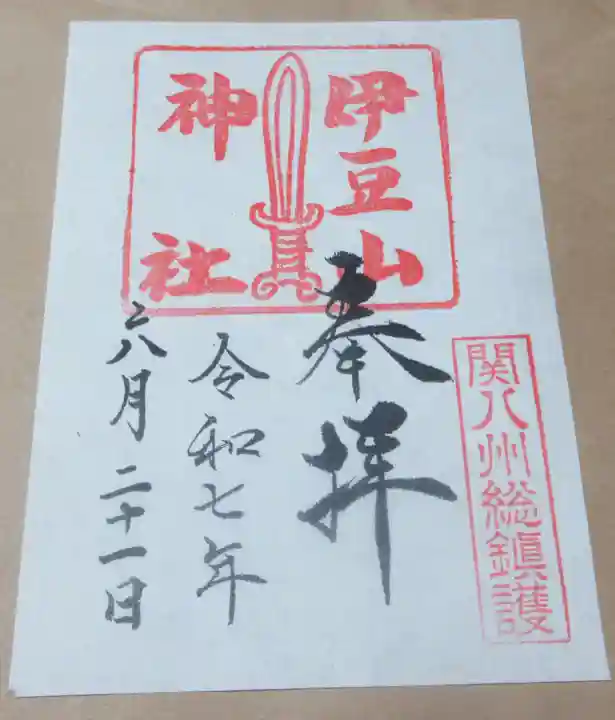 関八州総鎭護
奉拝
伊豆山
神社
令和七年
六月二十一日